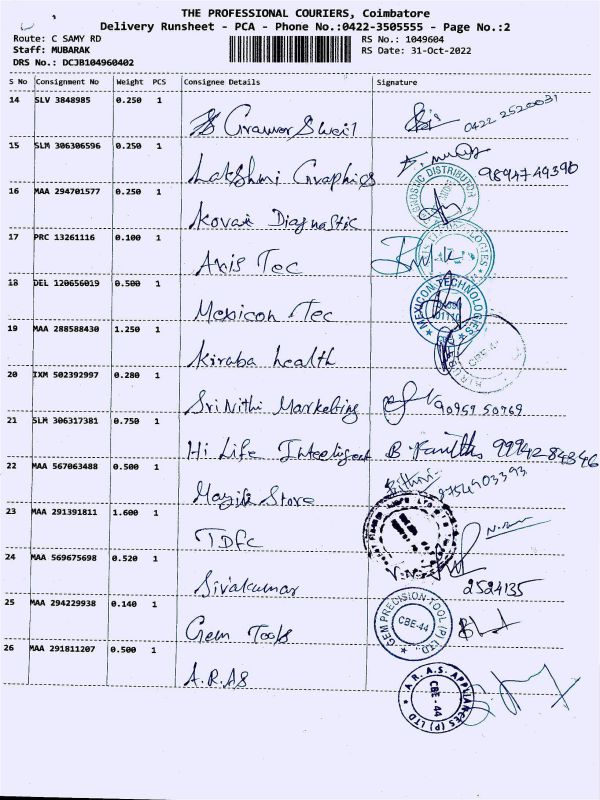 THE PROFESSIONAL COURIERS, Coimbatore
Delivery Runsheet - PCA - Phone No.:0422-3505555 - Page No.:2
Route: C SAMY RD
RS No.: 1049604
Staff: MUBARAK
RS Date: 31-Oct-2022
DRS No.: DCJB104960402
S No Consignment No Weight PCS Consignee Details Signature
14 SLV 3848985 0.250 1
0422 2520031
15 SLM 306306596 0.250 1
Lakshmi Graphics 9894749390
16 MAA 294701577 0.250 1
Kovai Diagnastic
17 PRC 13261116 0.100 1
Axis Tec
18 DEL 120656019 0.500 1
Mexicon Tec
MEXICON TECHNOLOGIES
19 MAA 288588430 1.250 1
Kiraba health
CBE-4
20 IXM 502392997 0.280 1
Sri Nithi Markelting 90957 50769
21 SLM 306317381 0.750 1
Hi Life Inteeligent
22 MAA 567063488 0.500 1
Store 8754903393
23 MAA 291391811 1.600 1
TDFC
24 MAA 569675698 0.520 1
Sivakumar 2524135
25 MAA 294229938 0.140 1
Gem Tools
GEM PRECISION TOOL (P) LTD.,
CBE-44
26 MAA 291811207 0.500 1
A.R.AS
A.R.A.S. APPLIANCES (P) LTD
CBE - 44